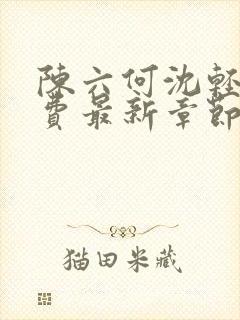 陳六何沈輕
費最新章節
猫田米藏